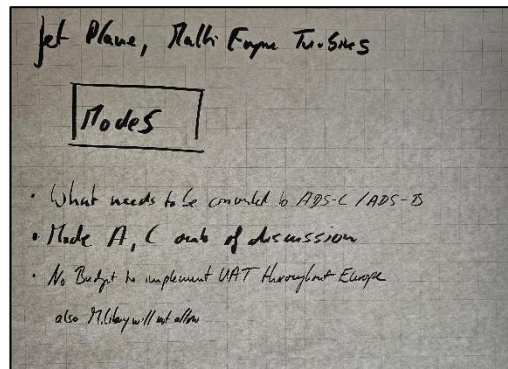 Jet Plane, Multi Engine Turbines
Mode S
• What needs to be converted to ADS-C / ADS-B
• Mode A, C out of discussion
• No Budget to implement UAT throughout Europe
also Military will not allow